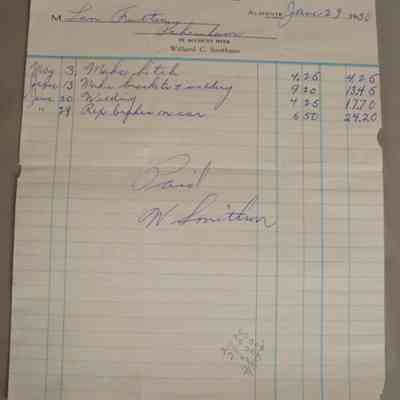 ALMONTE, June 29 1930
M Len
Pakenham
IN ACCOUNT WITH
Willard C. Smithson
May 3, Make hitch 4.25 4.25
June 13 Make brackets & welding 9.20 13.45
June 20 Welding 4.25 17.70
" 29 Rep. on car 6.50 24.20
Paid
W Smithson